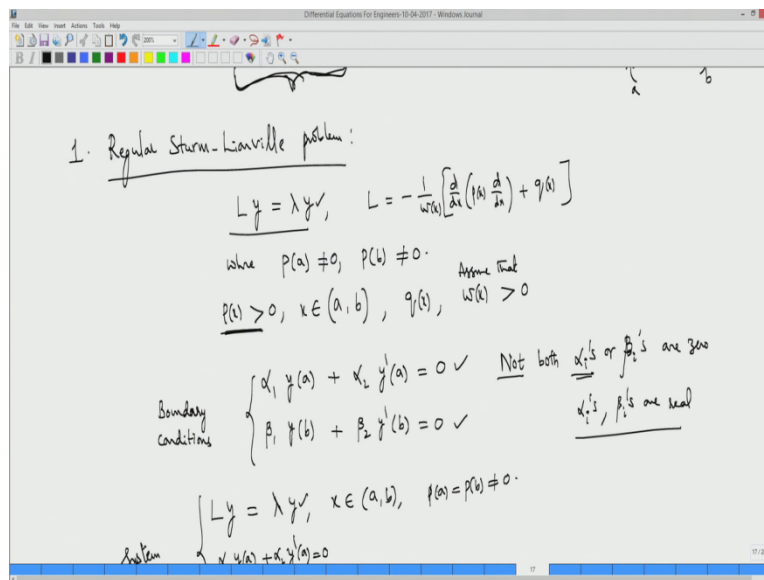 Differential Equations For Engineers-10-04-2017 - Windows Journal
File Edit View Insert Actions Tools Help
200%
B I
a b
1. Regular Sturm-Liouville problem:
Ly = λy, L = -1/w(x) [d/dx (p(x) d/dx) + q(x)]
where p(a) ≠ 0, p(b) ≠ 0.
p(x) > 0, x ∈ (a, b), q(x), Assume that w(x) > 0
Boundary conditions { α₁ y(a) + α₂ y'(a) = 0 ✓ Not both αᵢ's or βᵢ's are zero
β₁ y(b) + β₂ y'(b) = 0 ✓ αᵢ's, βᵢ's are real
System { Ly = λy, x ∈ (a, b), p(a) = p(b) ≠ 0.
α₁ y(a) + α₂ y'(a) = 0
17